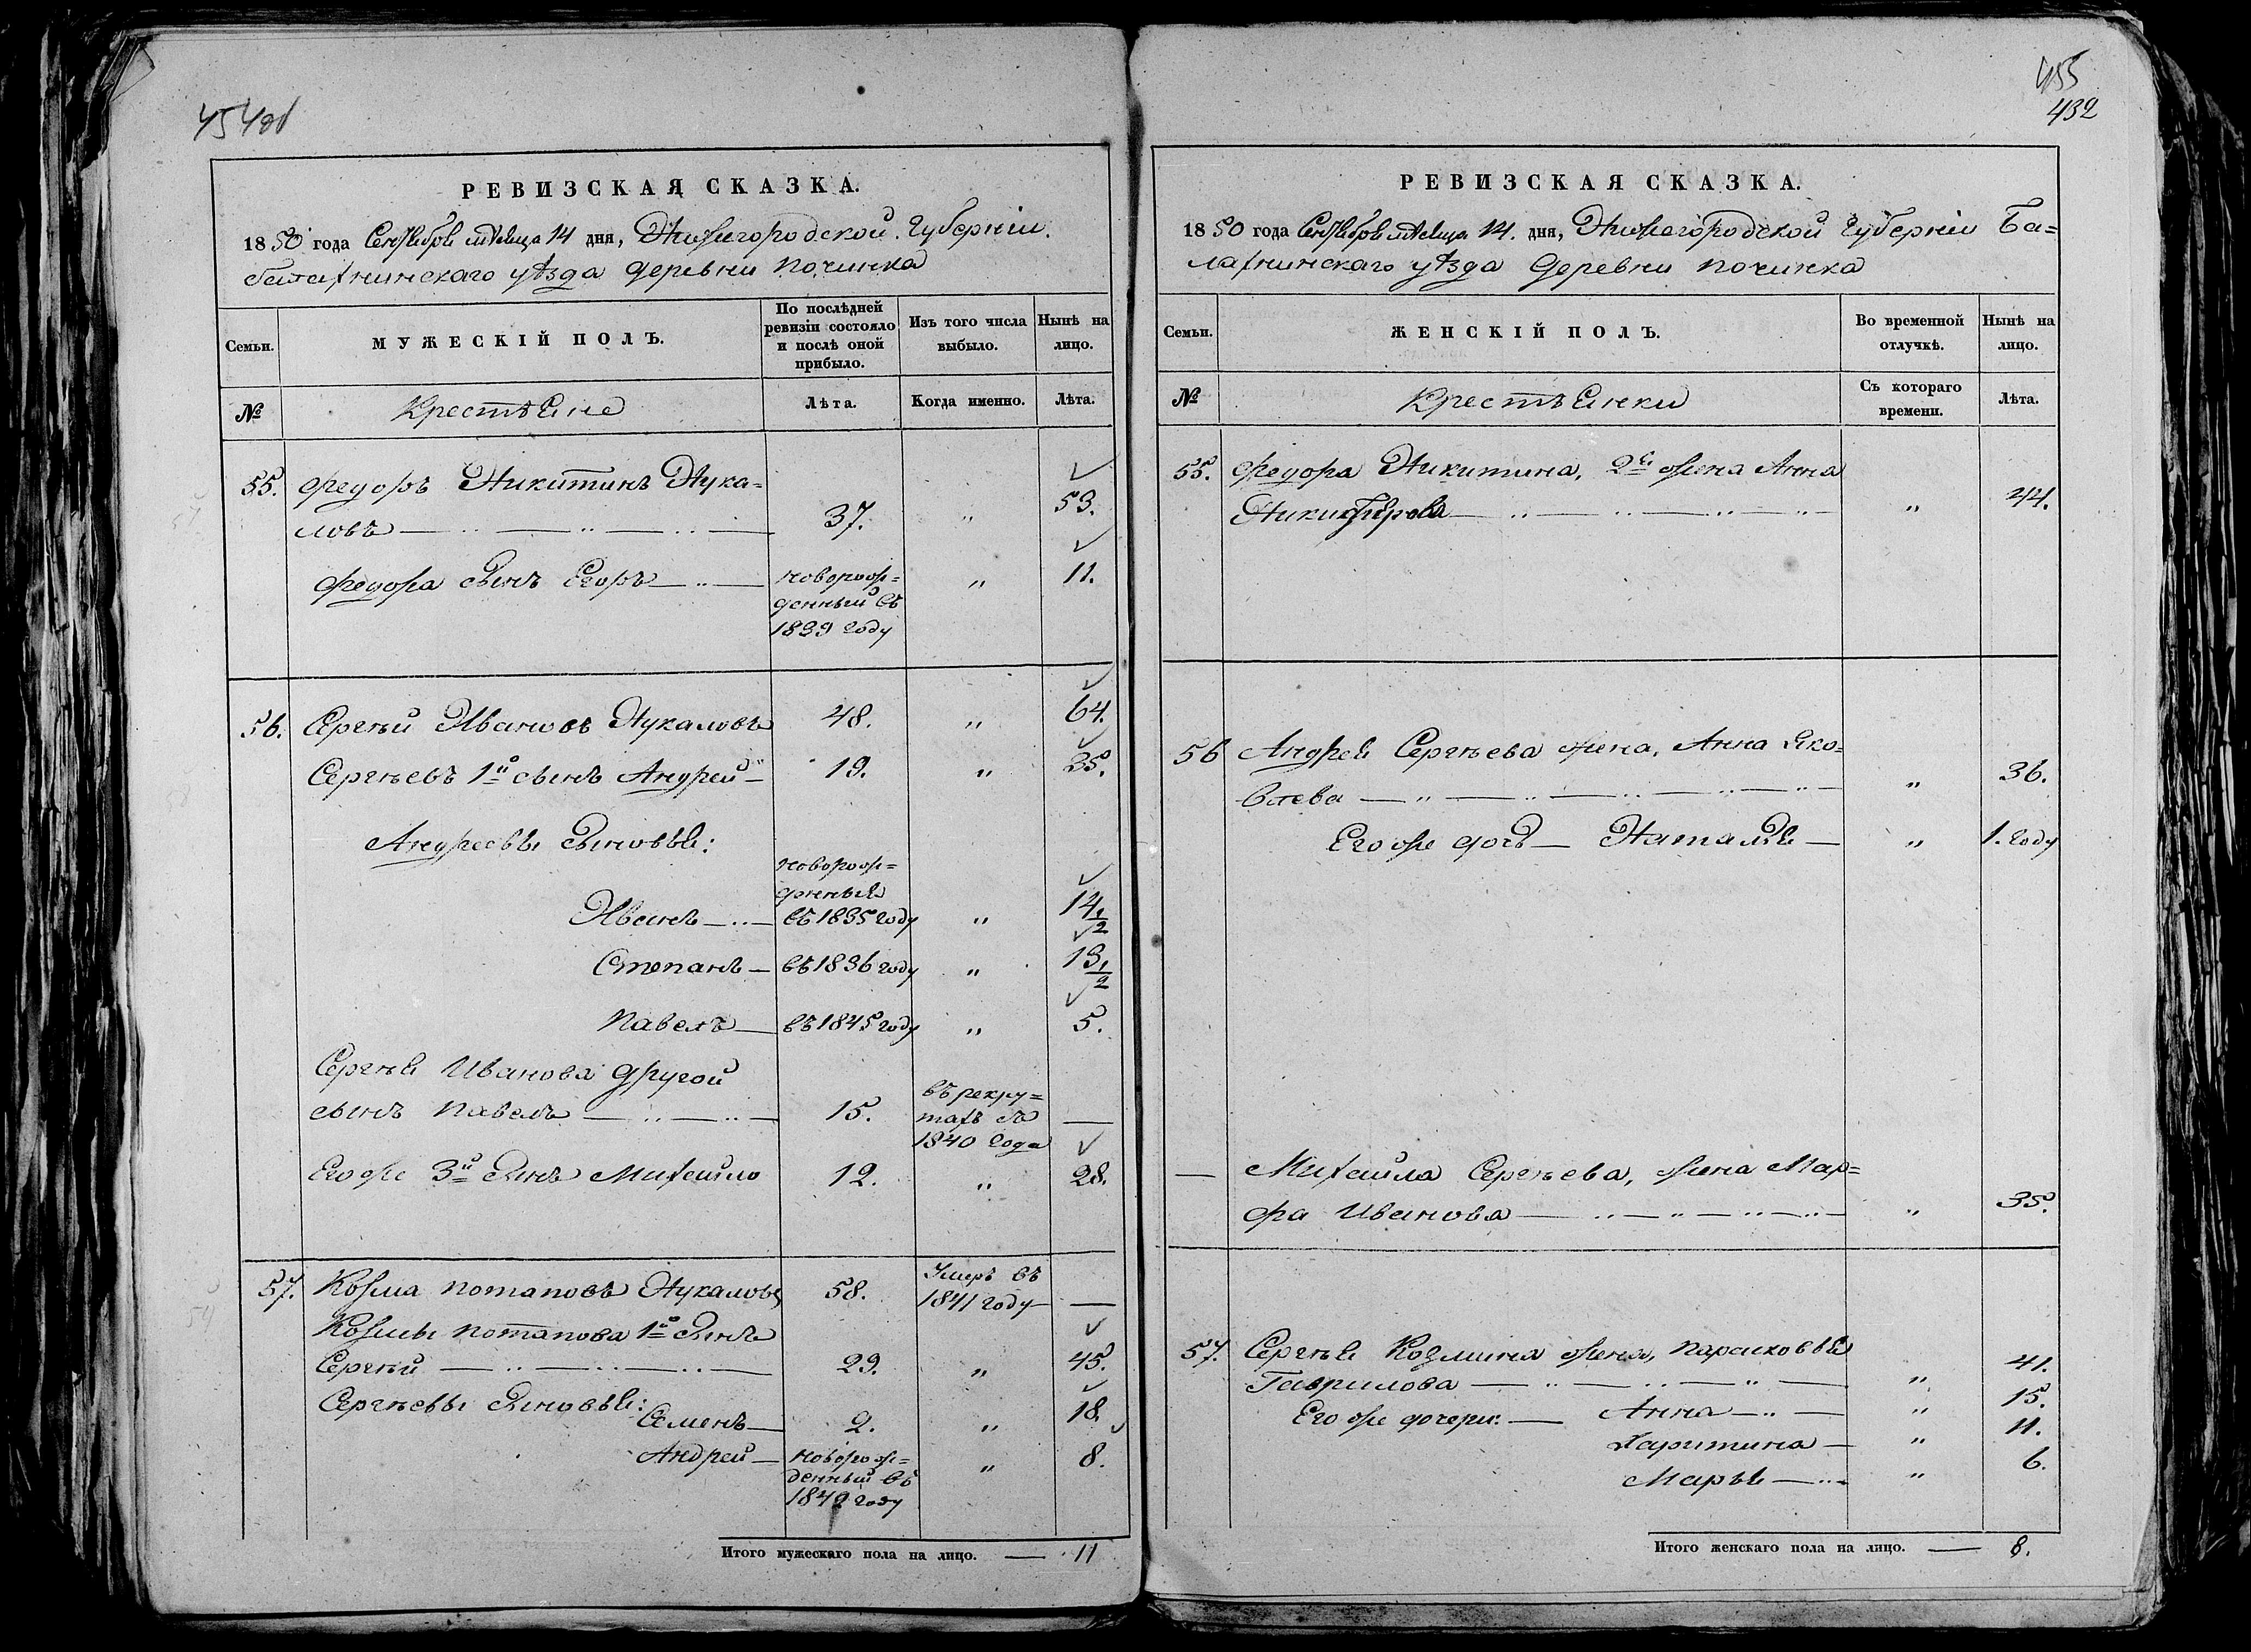 454об
РЕВИЗСКАЯ СКАЗКА.
1850 года Сентября месяца 14 дня, Нижегородской Губерніи.
балахнинскаго уѣзда деревни Починка
Семьи.
МУЖЕСКІЙ ПОЛЪ.
По послѣдней ревизіи состояло и послѣ оной прибыло.
Изъ того числа выбыло.
Нынѣ на лицо.
№
Крестьяне
Лѣта.
Когда именно.
Лѣта.
55. Федоръ Никитинъ Нука=
ловъ 37. „ 53.
Федора сынъ Егоръ новорож= „ 11.
денный въ
1839 году
56. Сергѣй Ивановъ Нукаловъ 48. „ 64.
Сергѣевъ 1й сынъ Андрей 19. „ 35.
Андреевы сыновья:
новорож=
денныя
Иванъ въ 1835 году „ 14 1/2
Степанъ въ 1836 году „ 13 1/2
Павелъ въ 1845 году „ 5.
Сергѣя Иванова другой
сынъ Павелъ 15. въ рекру=
тахъ съ
1840 года
Егоже 3й сынъ Михайло 12. „ 28.
57. Козма Потаповъ Нукаловъ 58. Умеръ въ
1841 году
Козмы Потапова 1й сынъ
Сергѣй 29. „ 45.
Сергѣевы сыновья:
Семенъ 2. „ 18.
Андрей новорож= „ 8.
денный въ
1842 году
Итого мужескаго пола на лицо. 11
455
432
РЕВИЗСКАЯ СКАЗКА.
1850 года Сентября месяца 14. дня, Нижегородской Губерніи Ба=
лахнинскаго уѣзда Деревни Починка
Семьи.
ЖЕНСКІЙ ПОЛЪ.
Во временной отлучкѣ.
Нынѣ на лицо.
№
Крестьянки
Съ котораго времени.
Лѣта.
55. Федора Никитина, 2я жена Анна
Никифорова „ 44.
56 Андрея Сергѣева жена, Анна Яко=
влева „ 36.
Егоже дочь Наталья „ 1. году
Михайла Сергѣева, жена Мар=
фа Иванова „ 35.
57. Сергѣя Козмина жена, Парасковья
Гаврилова „ 41.
Егоже дочери: Анна „ 15.
Харитина „ 11.
Марья „ 6.
Итого женскаго пола на лицо. 8.